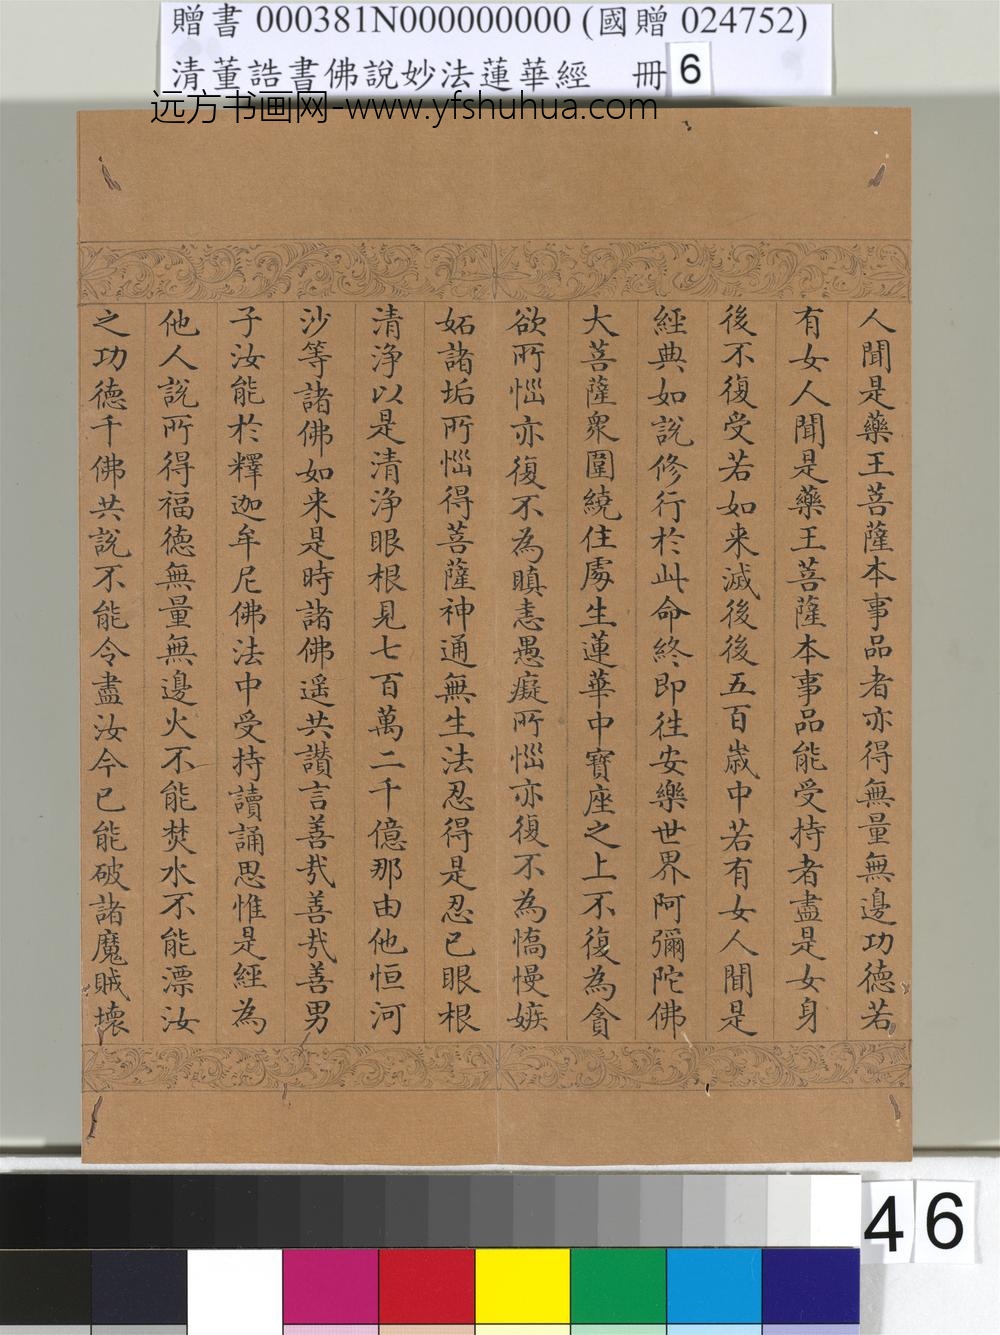 贈書 000381N000000000 (國贈 024752)
清董誥書佛說妙法蓮華經 冊 6
远方书画网-www.yfshuhua.com
人聞是藥王菩薩本事品者亦得無量無邊功德若
有女人聞是藥王菩薩本事品能受持者盡是女身
後不復受若如来滅後後五百歳中若有女人聞是
經典如說修行於此命終即徃安樂世界阿彌陀佛
大菩薩衆圍繞住處生蓮華中寶座之上不復為貪
欲所惱亦復不為瞋恚愚癡所惱亦復不為憍慢嫉
妬諸垢所惱得菩薩神通無生法忍得是忍已眼根
清淨以是清淨眼根見七百萬二千億那由他恒河
沙等諸佛如来是時諸佛遥共讃言善哉善哉善男
子汝能於釋迦牟尼佛法中受持讀誦思惟是經為
他人說所得福德無量無邊火不能焚水不能漂汝
之功德千佛共說不能令盡汝今已能破諸魔賊壊
46